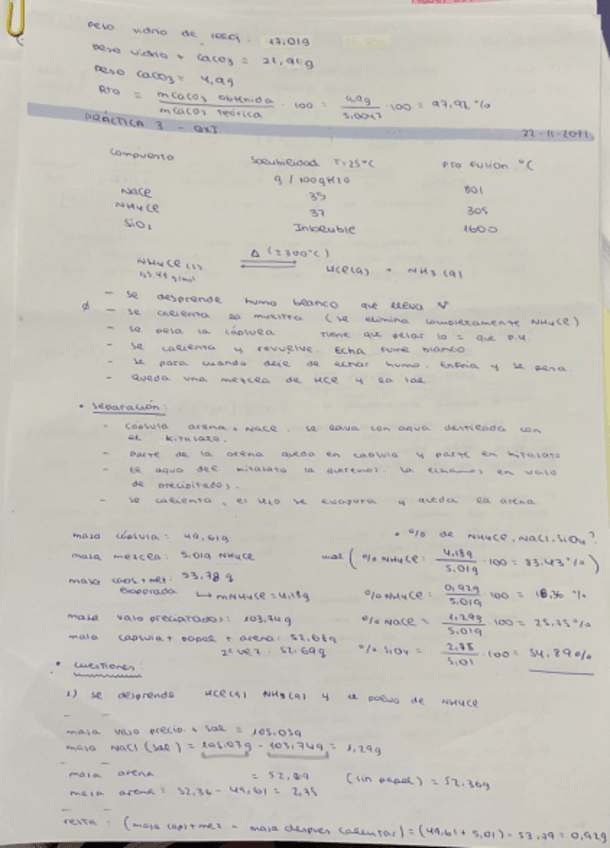 peso vidrio de reloj: 17,01g
peso vidrio + CaCO3 = 21,91g
peso CaCO3 = 4,9g
Rto = mCaCO3 obtenida / mCaCO3 teórica · 100 = 4,9g / 5,0043 · 100 = 97,92 %
PRÁCTICA 3 - QXI 22-11-2011
Compuesto Solubilidad T=25°C Pto fusión °C
g / 100g H2O
NaCl 35 801
NH4Cl 37 305
SiO2 Insoluble 1600
NH4Cl(s) Δ (≥300°C) HCl(g) + NH3(g)
- Se desprende humo blanco que lleva
- Se calienta la muestra (se elimina completamente NH4Cl)
- Se pesa la cápsula tiene que pesar lo = que
- Se calienta y revuelve. Echa humo blanco
- Se para cuando deje de echar humo. Enfría y se pesa.
- Queda una mezcla de HCl y la sal.
• Separación:
- Cápsula arena + NaCl. Se lava con agua destilada con
el kitasato.
- Parte de la arena queda en cápsula y parte en kitasato
- El agua del kitasato la queremos. La echamos en vaso
de precipitados.
- Se calienta, el H2O se evapora y queda la arena
masa cápsula: 49,61g • % de NH4Cl, NaCl, SiO4?
masa mezcla: 5,01g NH4Cl mal ( % NH4Cl: 4,18g / 5,01g · 100 = 83,43 % )
masa caps + mez: 53,78 g
evaporada ↳ mNH4Cl = 4,18g % NH4Cl: 0,92g / 5,01g · 100 = 18,36 %
masa vaso precipitados: 103,74g % NaCl = 1,29g / 5,01g · 100 = 25,75 %
masa cápsula + papel + arena: 52,68g
2ª vez: 52,69g % SiO4: 2,75 / 5,01 · 100 = 54,89 %
• Cuestiones:
1) Se desprende HCl(g) NH3(g) y el polvo de NH4Cl
masa vaso precip. + sal = 105,03g
masa NaCl (sal) = 105,03g - 103,74g = 1,29g
masa arena = 52,69 (sin papel) = 52,36g
masa arena: 52,36 - 49,61 = 2,75
resta: (masa caps + mez - masa después calentar) = (49,61 + 5,01) - 53,79 = 0,92g